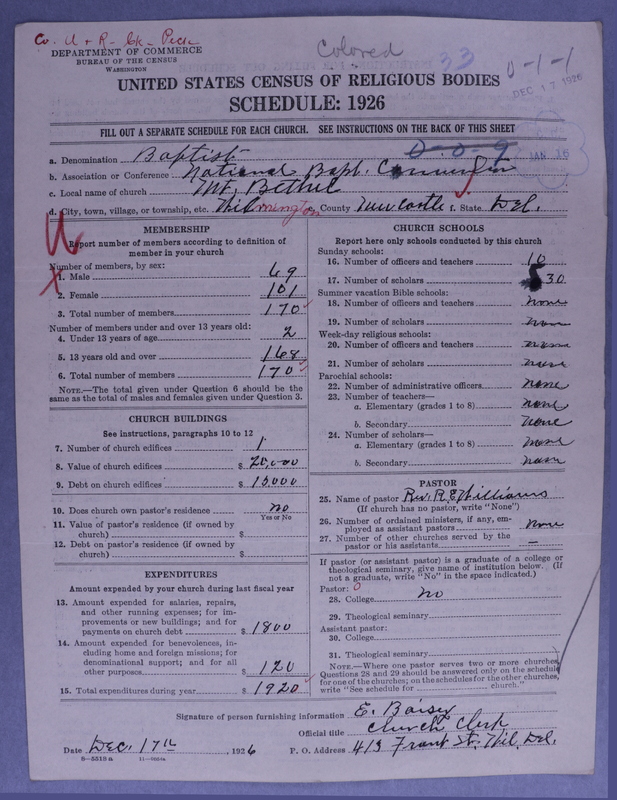 Co. U + R - Ck - Peck
Colored
33
0-1-1
DEPARTMENT OF COMMERCE
BUREAU OF THE CENSUS
WASHINGTON
DEC 17 1926
UNITED STATES CENSUS OF RELIGIOUS BODIES
SCHEDULE: 1926
FILL OUT A SEPARATE SCHEDULE FOR EACH CHURCH. SEE INSTRUCTIONS ON THE BACK OF THIS SHEET
0-0-9
JAN 15
a. Denomination Baptist
b. Association or Conference National Bapt. Convention
c. Local name of church Mt. Bethel
d. City, town, village, or township, etc. Wilmington e. County Newcastle f. State Del.
MEMBERSHIP
Report number of members according to definition of
member in your church
Number of members, by sex:
1. Male 69
2. Female 101
3. Total number of members 170
Number of members under and over 13 years old:
4. Under 13 years of age 2
5. 13 years old and over 168
6. Total number of members 170
NOTE.—The total given under Question 6 should be the
same as the total of males and females given under Question 3.
CHURCH BUILDINGS
See instructions, paragraphs 10 to 12
7. Number of church edifices 1
8. Value of church edifices $ 20,000
9. Debt on church edifices $ 15,000
10. Does church own pastor's residence no
Yes or No
11. Value of pastor's residence (if owned by
church) $
12. Debt on pastor's residence (if owned by
church) $
EXPENDITURES
Amount expended by your church during last fiscal year
13. Amount expended for salaries, repairs,
and other running expenses; for im-
provements or new buildings; and for
payments on church debt $ 1800
14. Amount expended for benevolences, in-
cluding home and foreign missions; for
denominational support; and for all
other purposes $ 120
15. Total expenditures during year $ 1920
CHURCH SCHOOLS
Report here only schools conducted by this church
Sunday schools:
16. Number of officers and teachers 10
17. Number of scholars 30
Summer vacation Bible schools:
18. Number of officers and teachers none
19. Number of scholars none
Week-day religious schools:
20. Number of officers and teachers none
21. Number of scholars none
Parochial schools:
22. Number of administrative officers none
23. Number of teachers—
a. Elementary (grades 1 to 8) none
b. Secondary none
24. Number of scholars—
a. Elementary (grades 1 to 8) none
b. Secondary none
PASTOR
25. Name of pastor Rev. R. E. Williams
(If church has no pastor, write "None")
26. Number of ordained ministers, if any, em-
ployed as assistant pastors none
27. Number of other churches served by the
pastor or his assistants —
If pastor (or assistant pastor) is a graduate of a college or
theological seminary, give name of institution below. (If
not a graduate, write "No" in the space indicated.)
Pastor: 0
28. College no
29. Theological seminary
Assistant pastor:
30. College
31. Theological seminary
NOTE.—Where one pastor serves two or more churches,
Questions 28 and 29 should be answered only on the schedule
for one of the churches; on the schedules for the other churches,
write "See schedule for church."
Signature of person furnishing information E.
Official title Church Clerk
Date Dec. 17th, 1926 P. O. Address 413 Front St. Wil, Del.
8—5513a 11—9554a